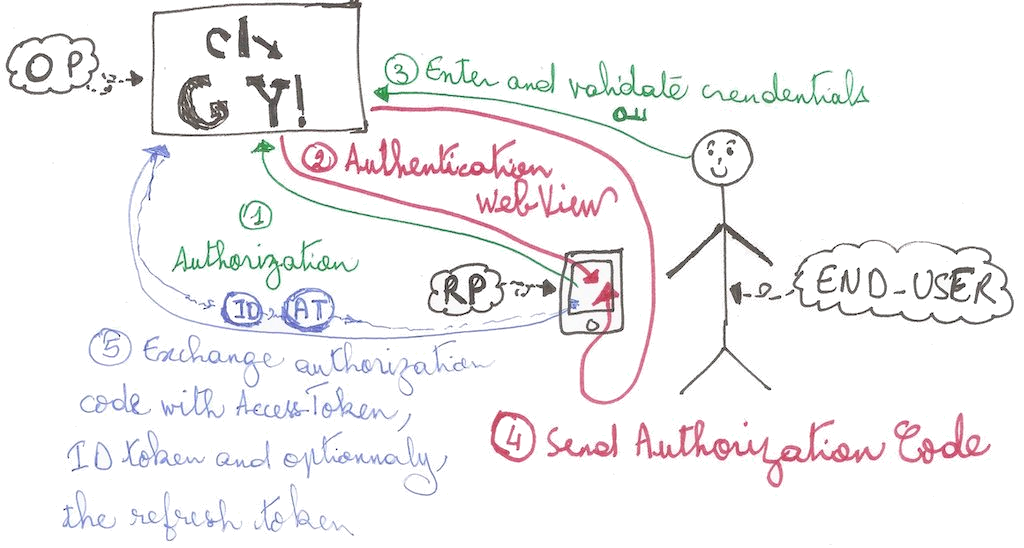 OP
G Y!
③ Enter and validate crendentials
② Authentication
WebView
①
Authorization
RP
END_USER
ID AT
⑤ Exchange authorization
code with Access Token,
ID token and optionnaly,
the refresh token
④ Send Authorization Code